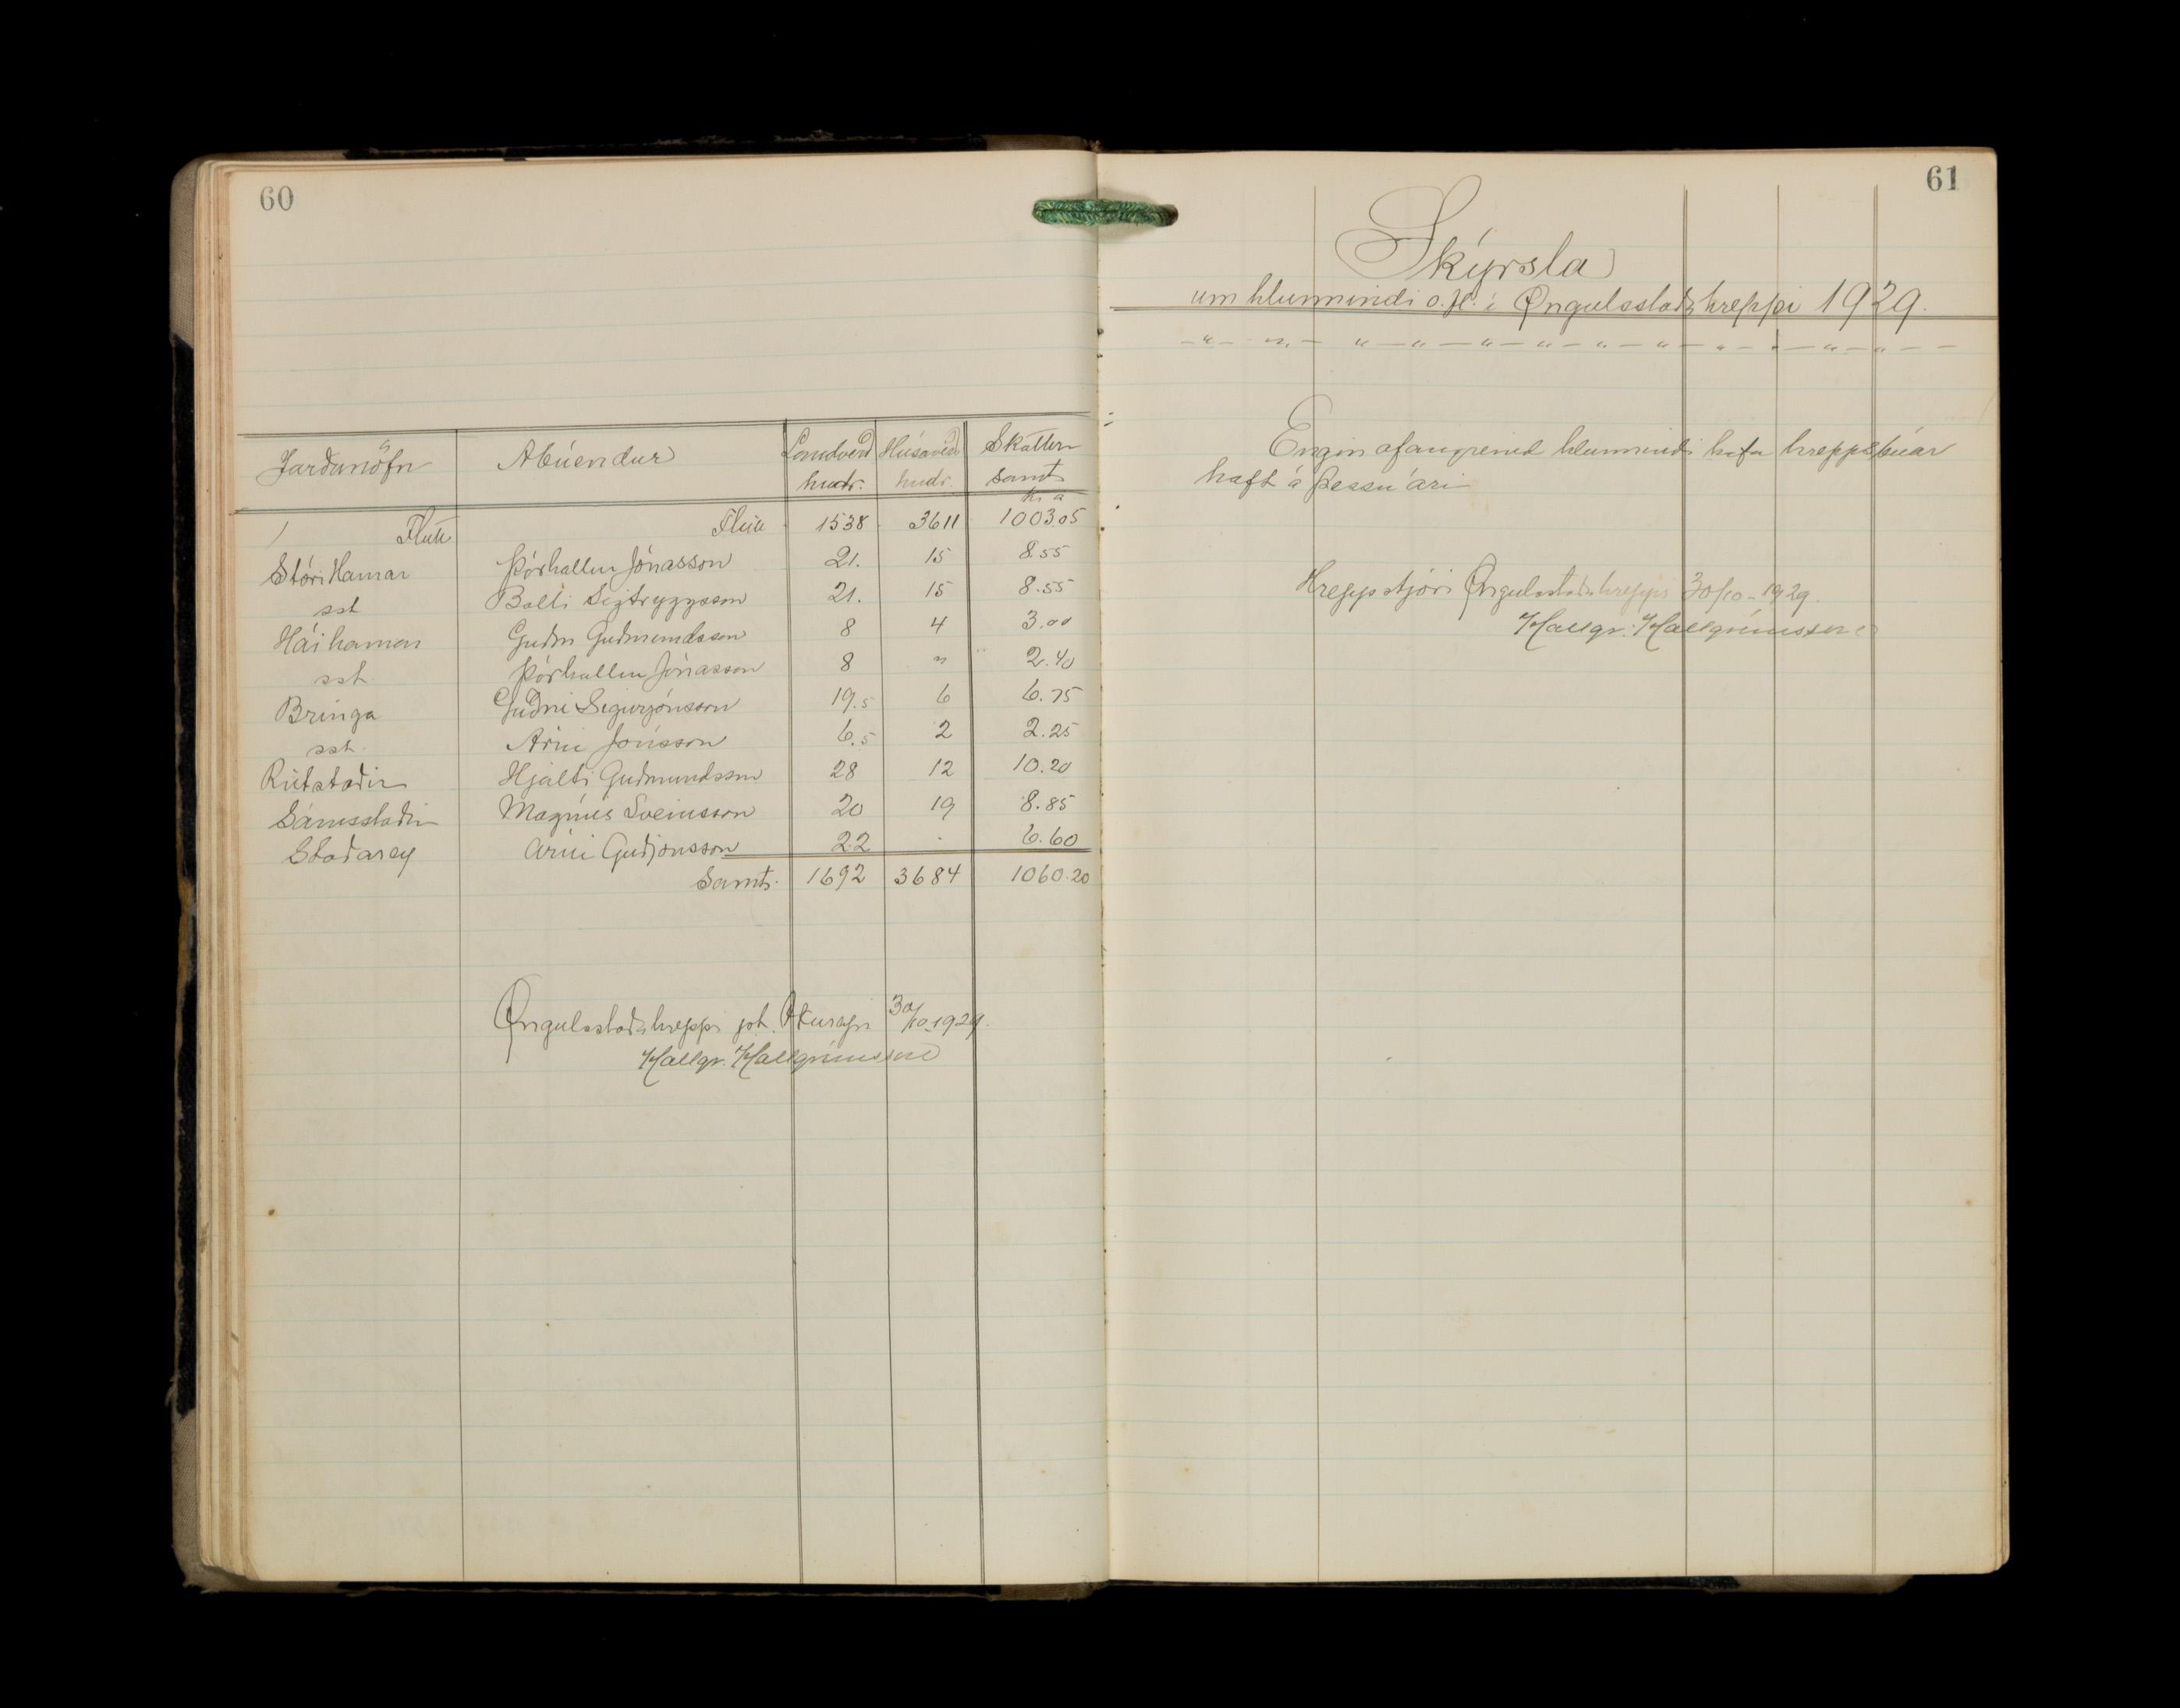 60
Jarðanöfn Ábúendur Landverð Húsaverð Skattur
hndr. hndr. samt.
kr a
Flutt Flutt 1538 3611 1003.05
Stóri Hamar Þórhallur Jónasson 21. 15 8.55
sst Baldi Sigtryggsson 21. 15 8.55
Háihamar Guðm Guðmundsson 8 4 3.00
sst. Þórhallur Jónasson 8 " 2.40
Bringa Guðni Sigurjónsson 19.5 6 6.75
sst. Árni Jónsson 6.5 2 2.25
Rútstaðir Hjalti Guðmundsson 28 12 10.20
Sámsstaðir Magnús Sveinsson 20 19 8.85
Staðarey Árni Guðjónsson 22 . 6.60
Samt. 1692 3684 1060.20
Öngulsstaðahreppi 30/10 1929.
Hallgr. Hallgrímsson
61
Skýrsla
um hlunnindi o.fl. í Öngulsstaðahreppi 1929.
Engin hlunnindi hafa hreppsbúar
haft á þessu ári
Hreppstjóri Öngulsstaðahrepps 30/10 - 1929.
Hallgr. Hallgrímsson